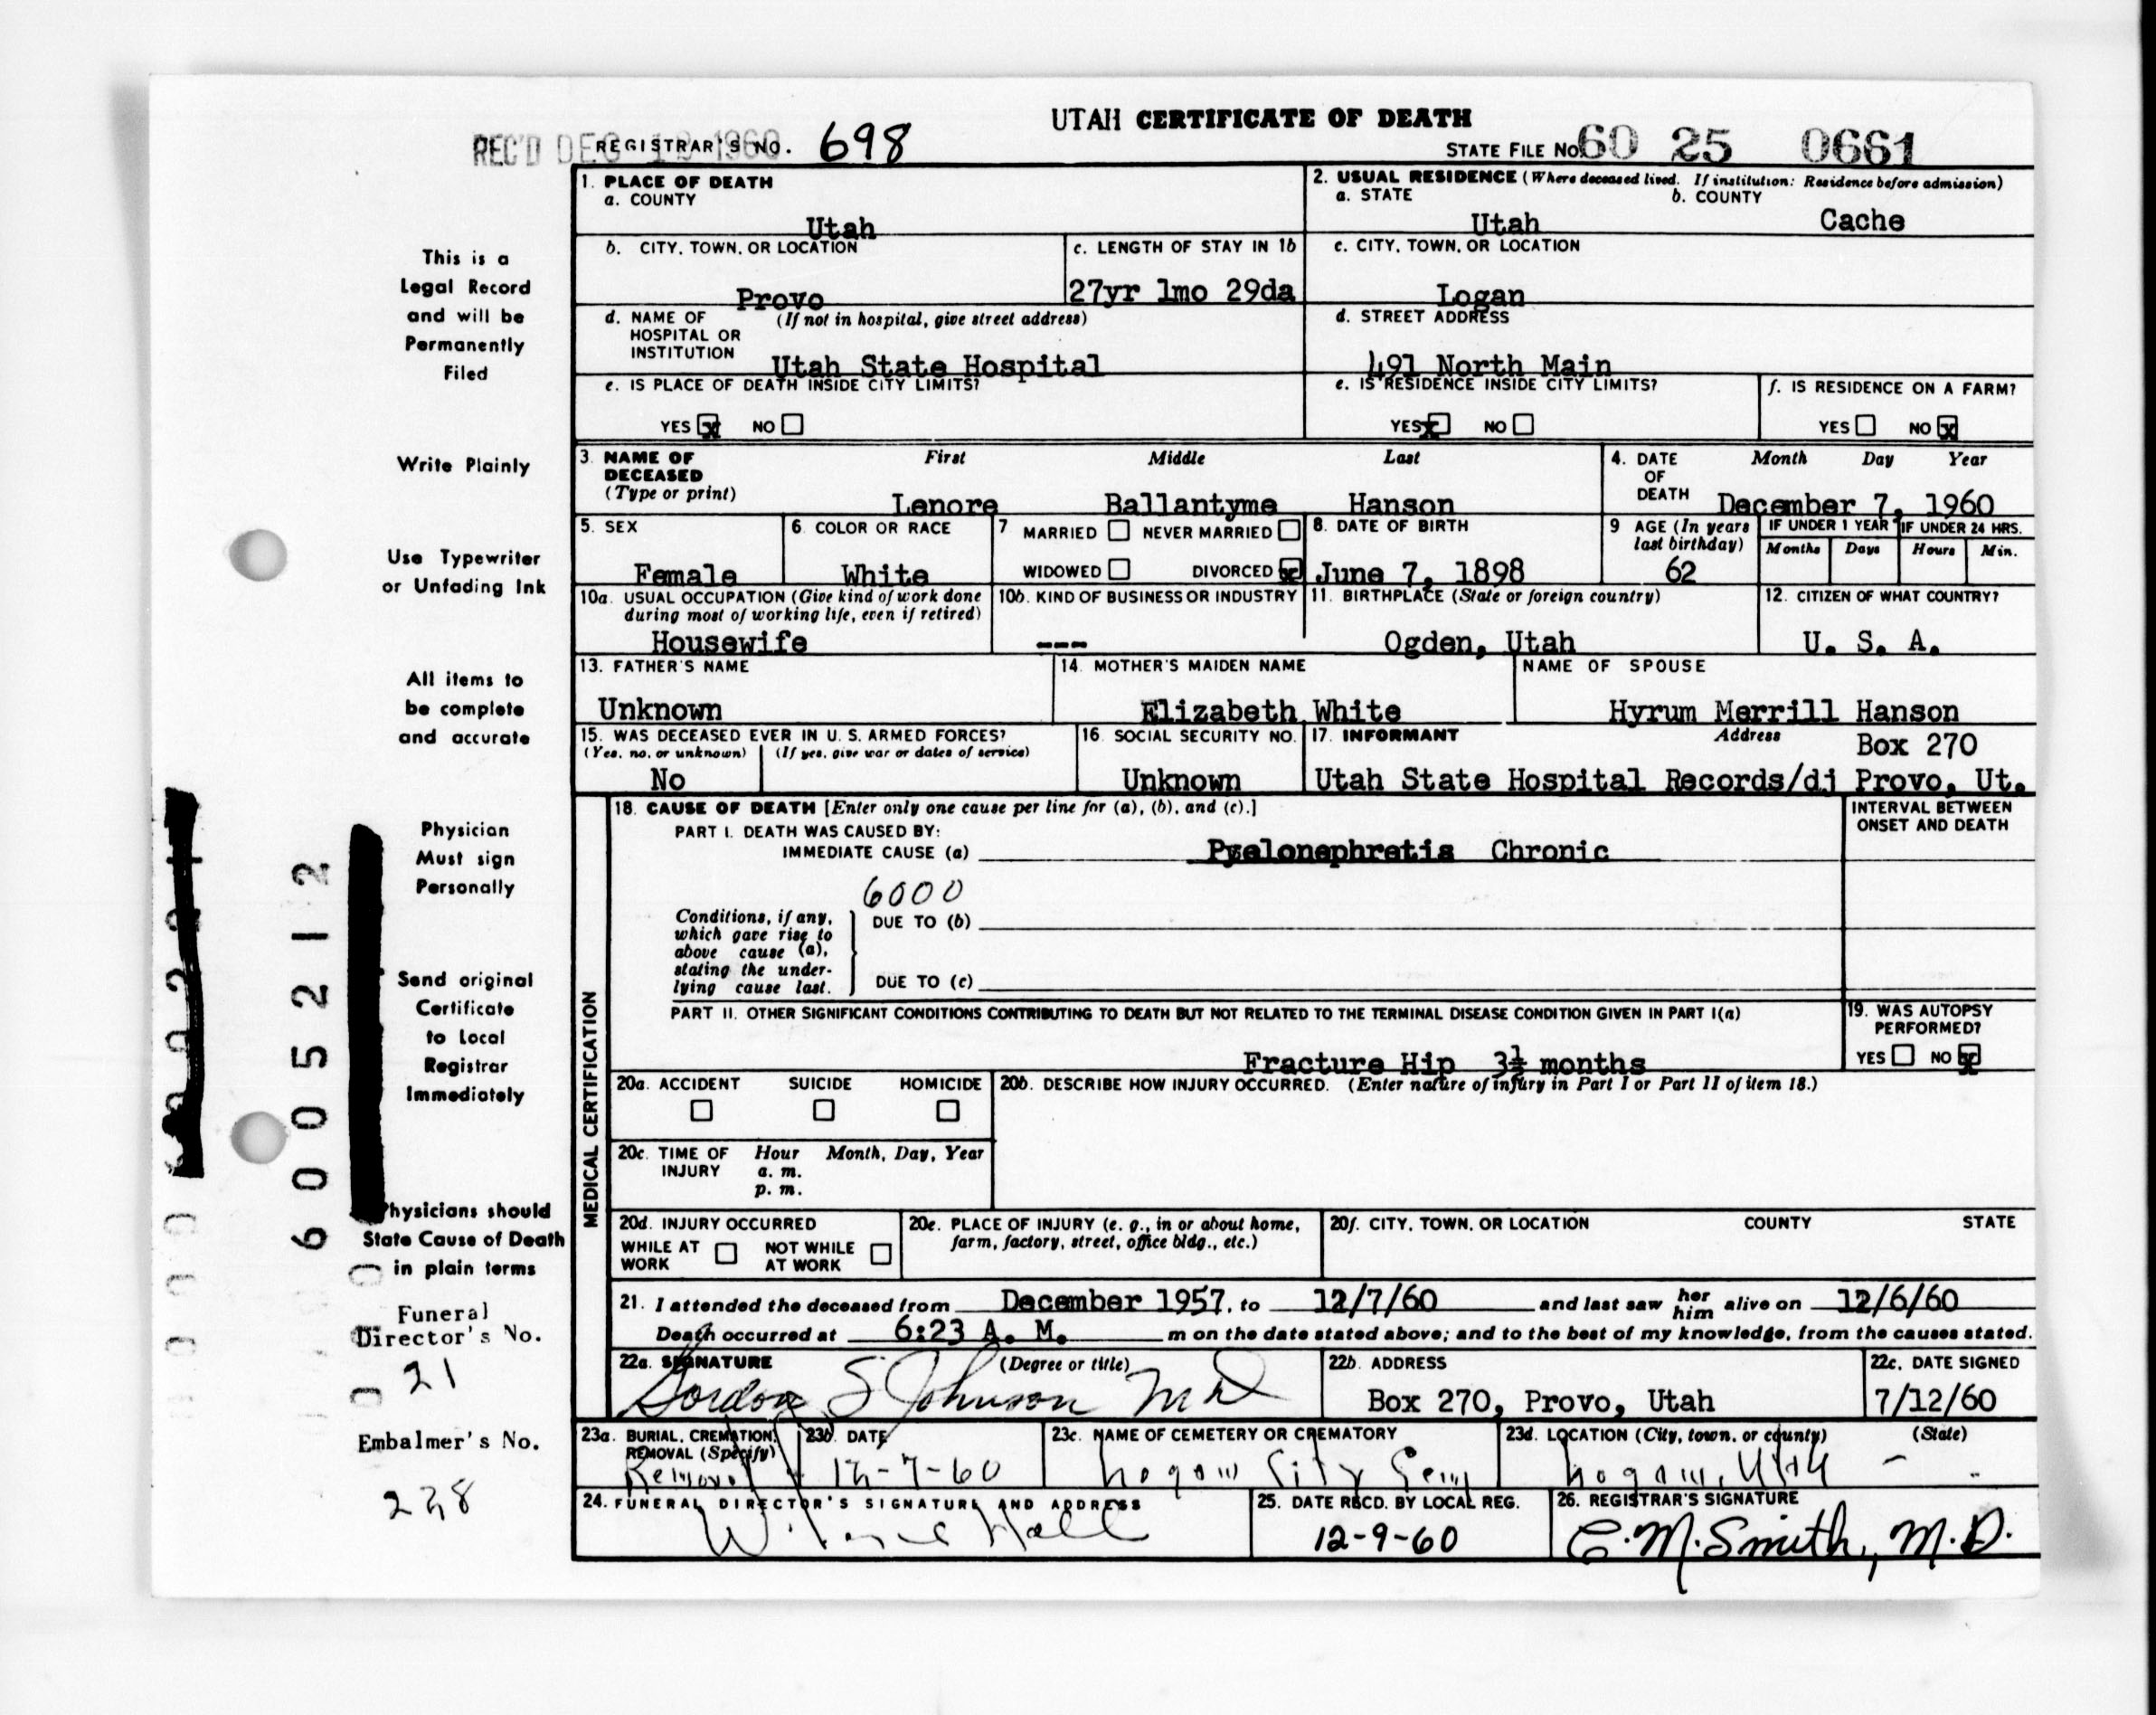 UTAH CERTIFICATE OF DEATH
REC'D DEC 1960 REGISTRAR'S NO. 698
STATE FILE NO. 60 25 0661
1. PLACE OF DEATH
a. COUNTY
Utah
2. USUAL RESIDENCE (Where deceased lived. If institution: Residence before admission)
a. STATE b. COUNTY
Utah Cache
b. CITY, TOWN, OR LOCATION
Provo
c. LENGTH OF STAY IN 1b
27yr 1mo 29da
c. CITY, TOWN, OR LOCATION
Logan
d. NAME OF (If not in hospital, give street address)
HOSPITAL OR
INSTITUTION
Utah State Hospital
d. STREET ADDRESS
491 North Main
e. IS PLACE OF DEATH INSIDE CITY LIMITS?
YES x NO
e. IS RESIDENCE INSIDE CITY LIMITS?
YES x NO
f. IS RESIDENCE ON A FARM?
YES NO x
3. NAME OF DECEASED (Type or print)
First Middle Last
Lenore Ballantyme Hanson
4. DATE OF DEATH
Month Day Year
December 7, 1960
5. SEX
Female
6. COLOR OR RACE
White
7 MARRIED NEVER MARRIED
WIDOWED DIVORCED x
8. DATE OF BIRTH
June 7, 1898
9 AGE (In years last birthday)
62
IF UNDER 1 YEAR IF UNDER 24 HRS.
Months Days Hours Min.
10a. USUAL OCCUPATION (Give kind of work done
during most of working life, even if retired)
Housewife
10b. KIND OF BUSINESS OR INDUSTRY
---
11. BIRTHPLACE (State or foreign country)
Ogden, Utah
12. CITIZEN OF WHAT COUNTRY?
U. S. A.
13. FATHER'S NAME
Unknown
14. MOTHER'S MAIDEN NAME
Elizabeth White
NAME OF SPOUSE
Hyrum Merrill Hanson
15. WAS DECEASED EVER IN U. S. ARMED FORCES?
(Yes, no, or unknown) (If yes, give war or dates of service)
No
16. SOCIAL SECURITY NO.
Unknown
17. INFORMANT Address Box 270
Utah State Hospital Records/dj Provo, Ut.
MEDICAL CERTIFICATION
18. CAUSE OF DEATH [Enter only one cause per line for (a), (b), and (c).]
PART I. DEATH WAS CAUSED BY:
IMMEDIATE CAUSE (a) Pyelonephretis Chronic
INTERVAL BETWEEN
ONSET AND DEATH
6000
Conditions, if any,
which gave rise to
above cause (a),
stating the under-
lying cause last.
DUE TO (b)
DUE TO (c)
PART II. OTHER SIGNIFICANT CONDITIONS CONTRIBUTING TO DEATH BUT NOT RELATED TO THE TERMINAL DISEASE CONDITION GIVEN IN PART I(a)
Fracture Hip 3½ months
19. WAS AUTOPSY
PERFORMED?
YES NO x
20a. ACCIDENT SUICIDE HOMICIDE
20b. DESCRIBE HOW INJURY OCCURRED. (Enter nature of injury in Part I or Part II of item 18.)
20c. TIME OF INJURY
Hour Month, Day, Year
a. m.
p. m.
20d. INJURY OCCURRED
WHILE AT WORK NOT WHILE AT WORK
20e. PLACE OF INJURY (e. g., in or about home,
farm, factory, street, office bldg., etc.)
20f. CITY, TOWN, OR LOCATION COUNTY STATE
21. I attended the deceased from December 1957, to 12/7/60 and last saw her him alive on 12/6/60
Death occurred at 6:23 A. M. m on the date stated above; and to the best of my knowledge, from the causes stated.
22a. SIGNATURE (Degree or title)
Gordon S Johnson MD
22b. ADDRESS
Box 270, Provo, Utah
22c. DATE SIGNED
7/12/60
23a. BURIAL, CREMATION,
REMOVAL (Specify)
Removal
23b. DATE
12-7-60
23c. NAME OF CEMETERY OR CREMATORY
Logan City Cem
23d. LOCATION (City, town, or county) (State)
Logan, Utah
24. FUNERAL DIRECTOR'S SIGNATURE AND ADDRESS
25. DATE RECD. BY LOCAL REG.
12-9-60
26. REGISTRAR'S SIGNATURE
E.M. Smith, M.D.
This is a
Legal Record
and will be
Permanently
Filed
Write Plainly
Use Typewriter
or Unfading Ink
All items to
be complete
and accurate
Physician
Must sign
Personally
Send original
Certificate
to Local
Registrar
Immediately
Physicians should
State Cause of Death
in plain terms
Funeral
Director's No.
21
Embalmer's No.
238
6005212